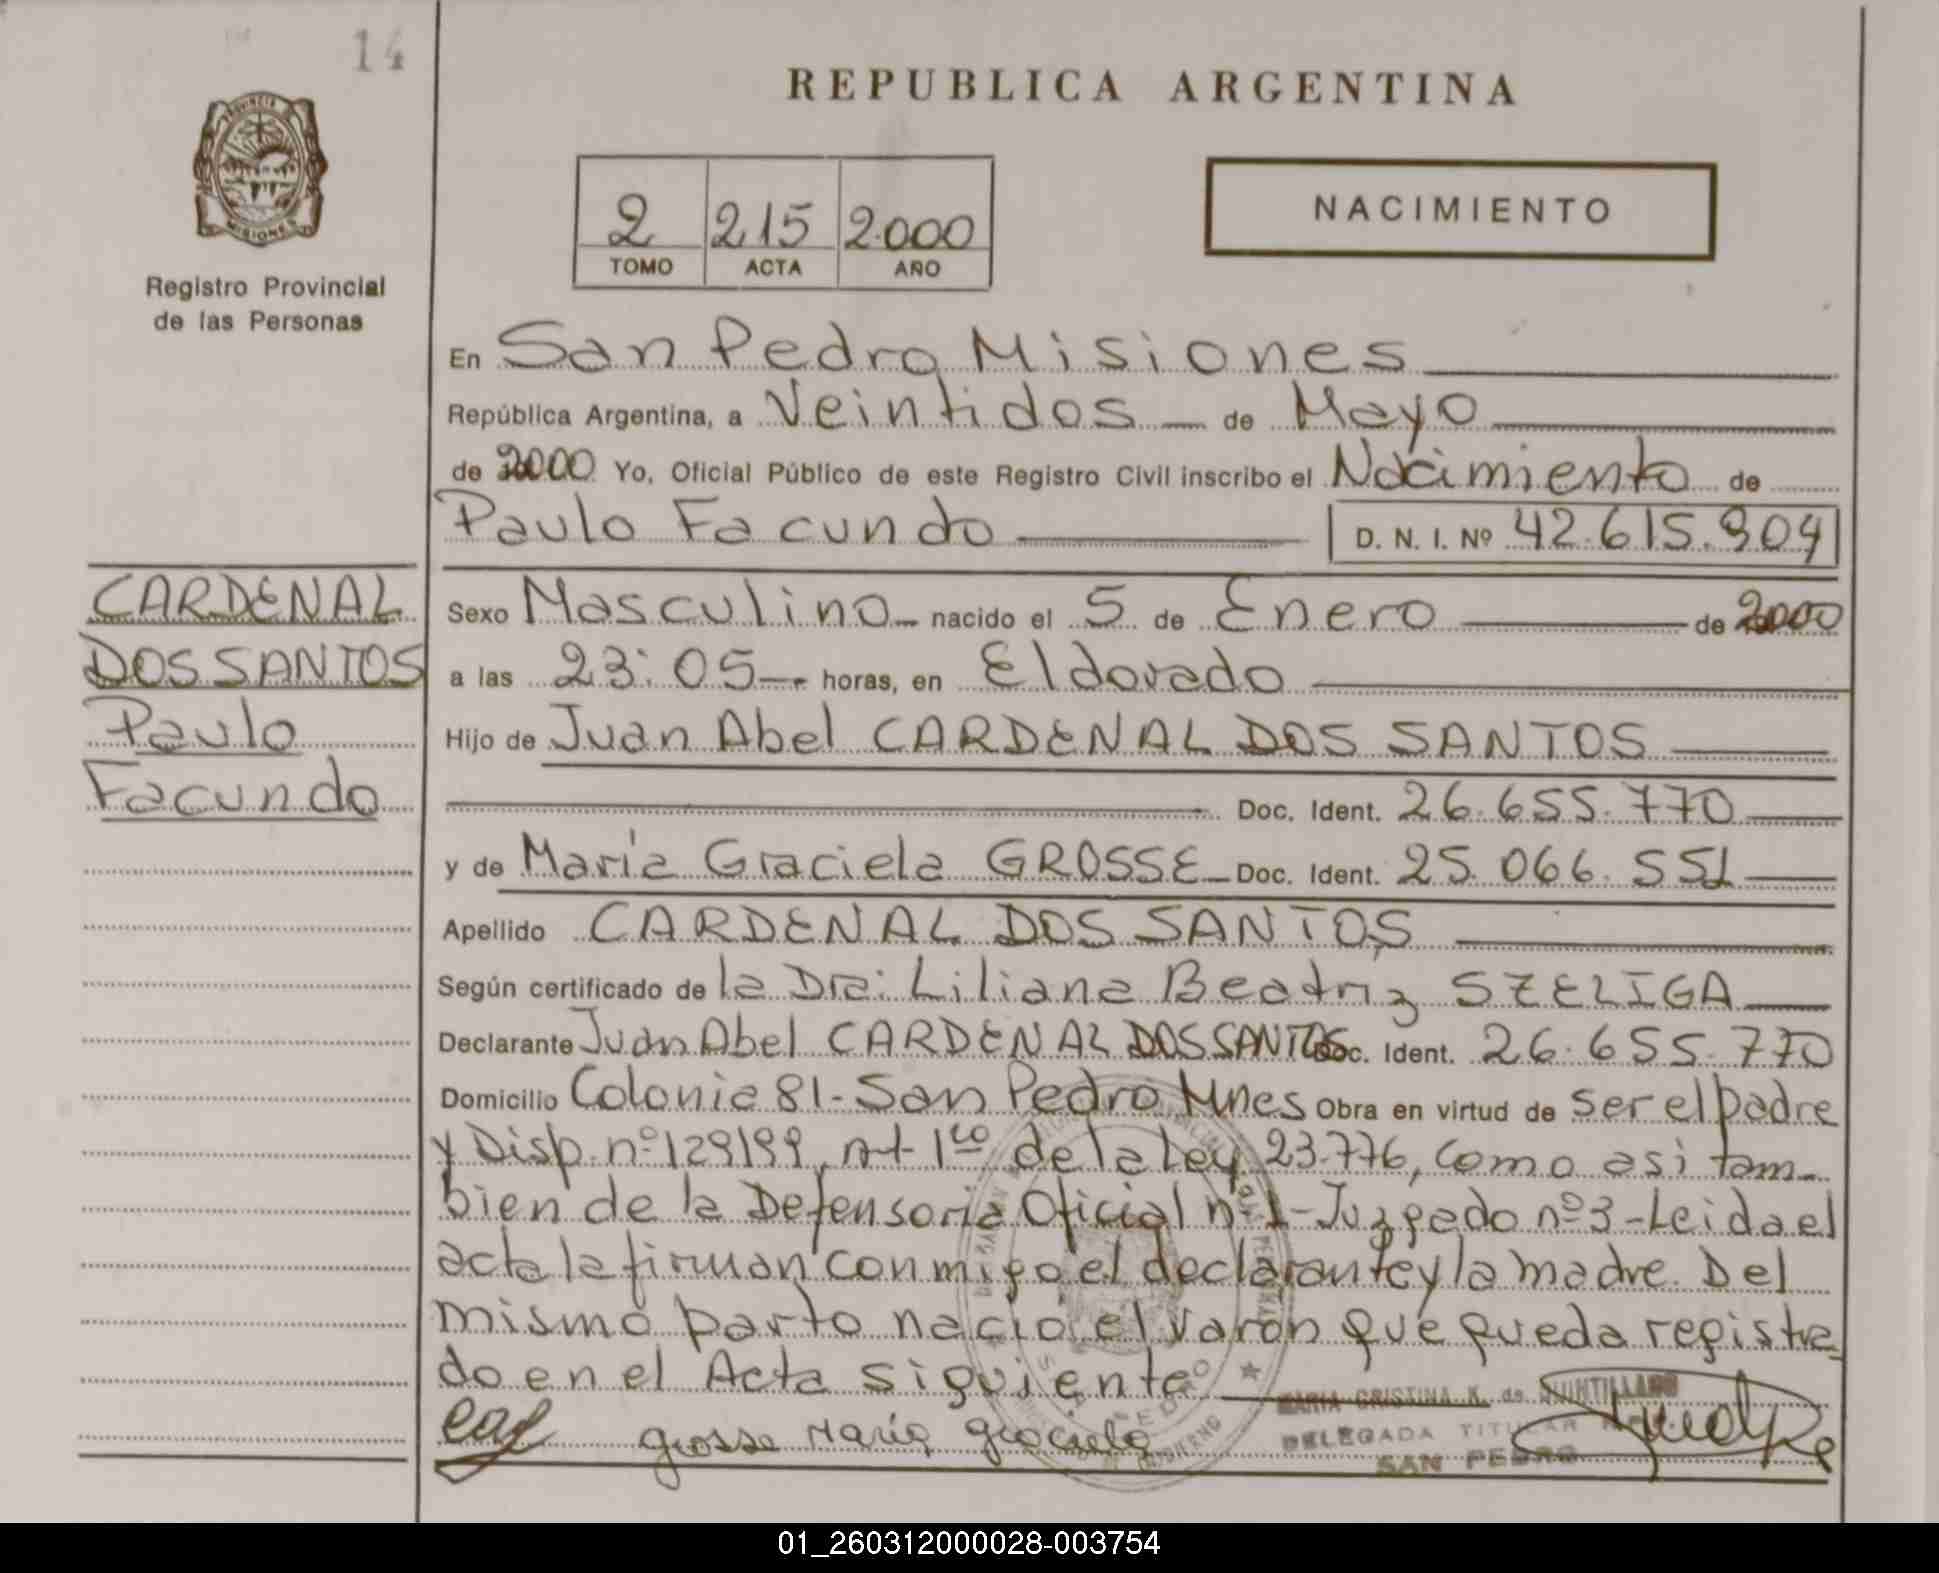 14
PROVINCIA
MISIONES
REPUBLICA ARGENTINA
2 215 2.000
TOMO ACTA AÑO
NACIMIENTO
Registro Provincial
de las Personas
En San Pedro Misiones
República Argentina, a Veintidos de Mayo
de 2000 Yo, Oficial Público de este Registro Civil inscribo el Nacimiento de
Paulo Facundo D. N. I. Nº 42.615.904
CARDENAL
DOS SANTOS
Paulo
Facundo
Sexo Masculino nacido el 5 de Enero de 2000
a las 23:05 horas, en Eldorado
Hijo de Juan Abel CARDENAL DOS SANTOS
Doc. Ident. 26.655.770
y de María Graciela GROSSE Doc. Ident. 25.066.551
Apellido CARDENAL DOS SANTOS
Según certificado de la Dra: Liliana Beatriz SZELIGA
Declarante Juan Abel CARDENAL DOS SANTOS Doc. Ident. 26.655.770
Domicilio Colonia 81-San Pedro Mnes Obra en virtud de ser el padre
y Disp. nº 129199, Art 1ro de la Ley 23.776, como asi tam-
bien de la Defensoria Oficial nº 1-Juzgado nº 3-Leida el
acta la firman conmigo el declarante y la madre. Del
mismo parto nacio el varon que queda registra-
do en el Acta siguiente
MARIA CRISTINA K. de QUINTILLANO
DELEGADA TITULAR
SAN PEDRO
Grosse María Graciela
SAN PEDRO
01_260312000028-003754